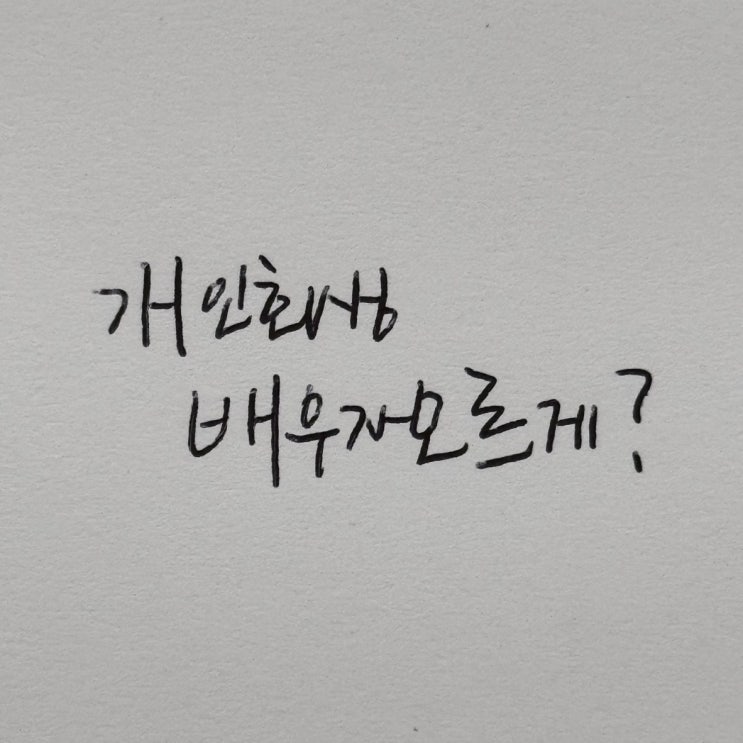 개인회생
배우자모르게?